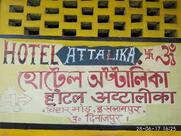 HOTEL ATTALIKA 卐 ॐ
হোটেল অট্টালিকা
होटल अट्टालीका
बिहार मोड़, इसलामपुर,
उ० दिनाजपुर।
25-06-17 16:25